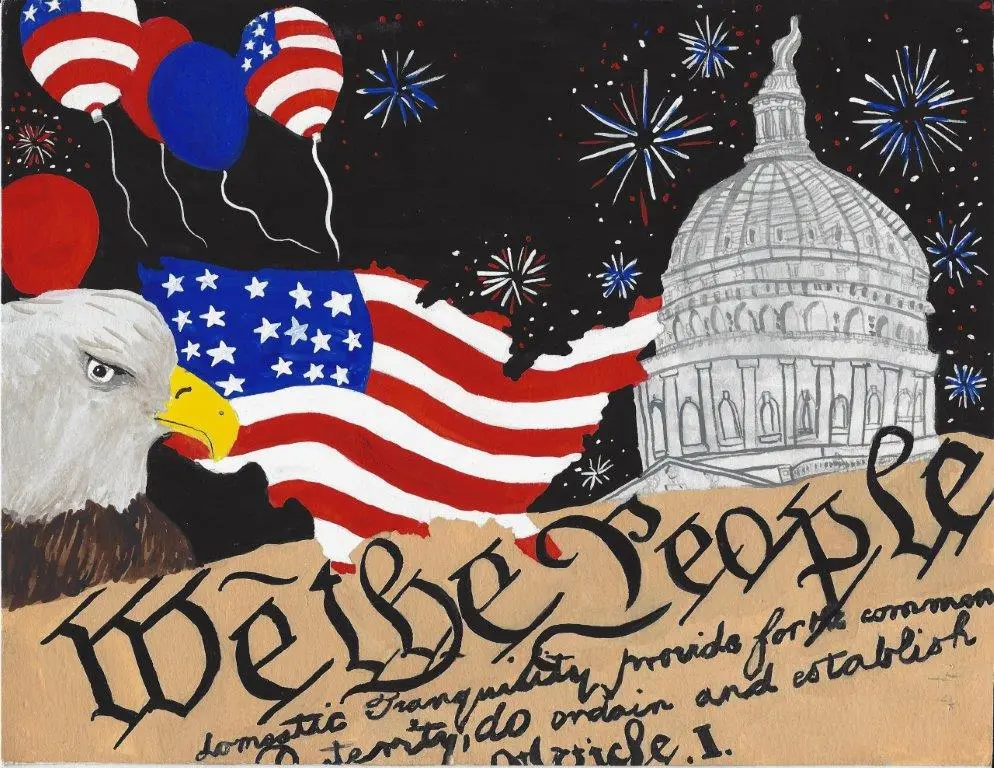 We the People
domestic Tranquility, provide for the common
terity, do ordain and establish
Article. I.